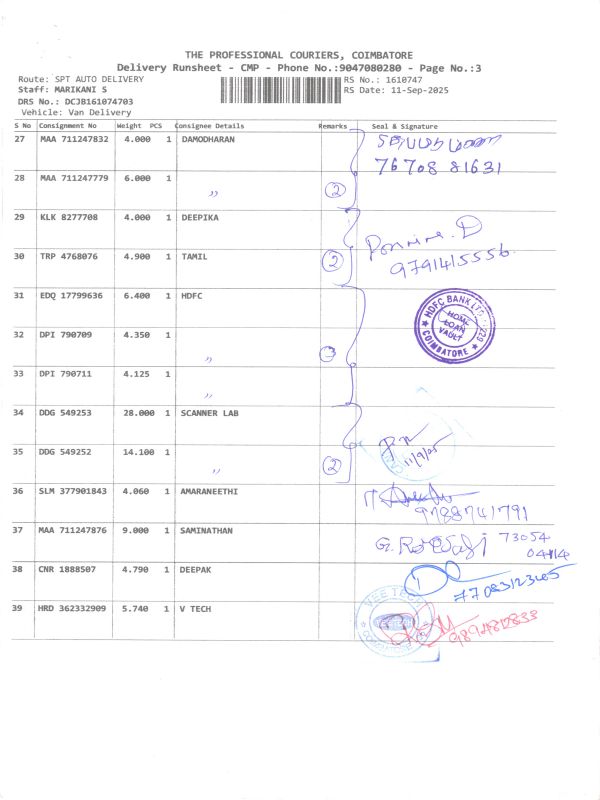 THE PROFESSIONAL COURIERS, COIMBATORE
Delivery Runsheet - CMP - Phone No.:9047080280 - Page No.:3
Route: SPT AUTO DELIVERY RS No.: 1610747
Staff: MARIKANI S RS Date: 11-Sep-2025
DRS No.: DCJB161074703
Vehicle: Van Delivery
S No Consignment No Weight PCS Consignee Details Remarks Seal & Signature
27 MAA 711247832 4.000 1 DAMODHARAN
76708 81631
28 MAA 711247779 6.000 1 ,, 2
29 KLK 8277708 4.000 1 DEEPIKA
30 TRP 4768076 4.900 1 TAMIL 2 9791415556
31 EDQ 17799636 6.400 1 HDFC
HDFC BANK LTD HOME LOAN VAULT COIMBATORE
32 DPI 790709 4.350 1 ,, 3
33 DPI 790711 4.125 1 ,,
34 DDG 549253 28.000 1 SCANNER LAB
35 DDG 549252 14.100 1 ,, 2 11/9/25
36 SLM 377901843 4.060 1 AMARANEETHI
9788741791
37 MAA 711247876 9.000 1 SAMINATHAN 73054
38 CNR 1888507 4.790 1 DEEPAK
39 HRD 362332909 5.740 1 V TECH
VEE TECH